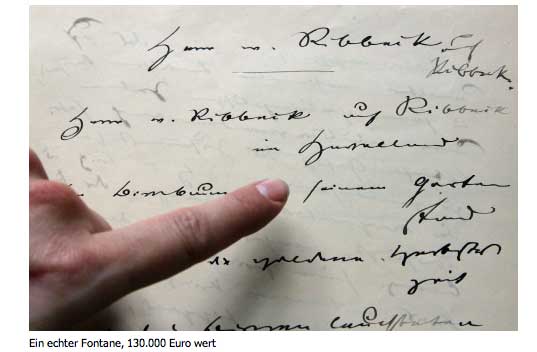 Herr v. Ribbeck auf
Ribbeck.
Herr v. Ribbeck auf Ribbeck
im Havelland
Birnbaum seinem Garten
stand
goldene Herbstes
zeit
Birnen leuchteten
Ein echter Fontane, 130.000 Euro wert